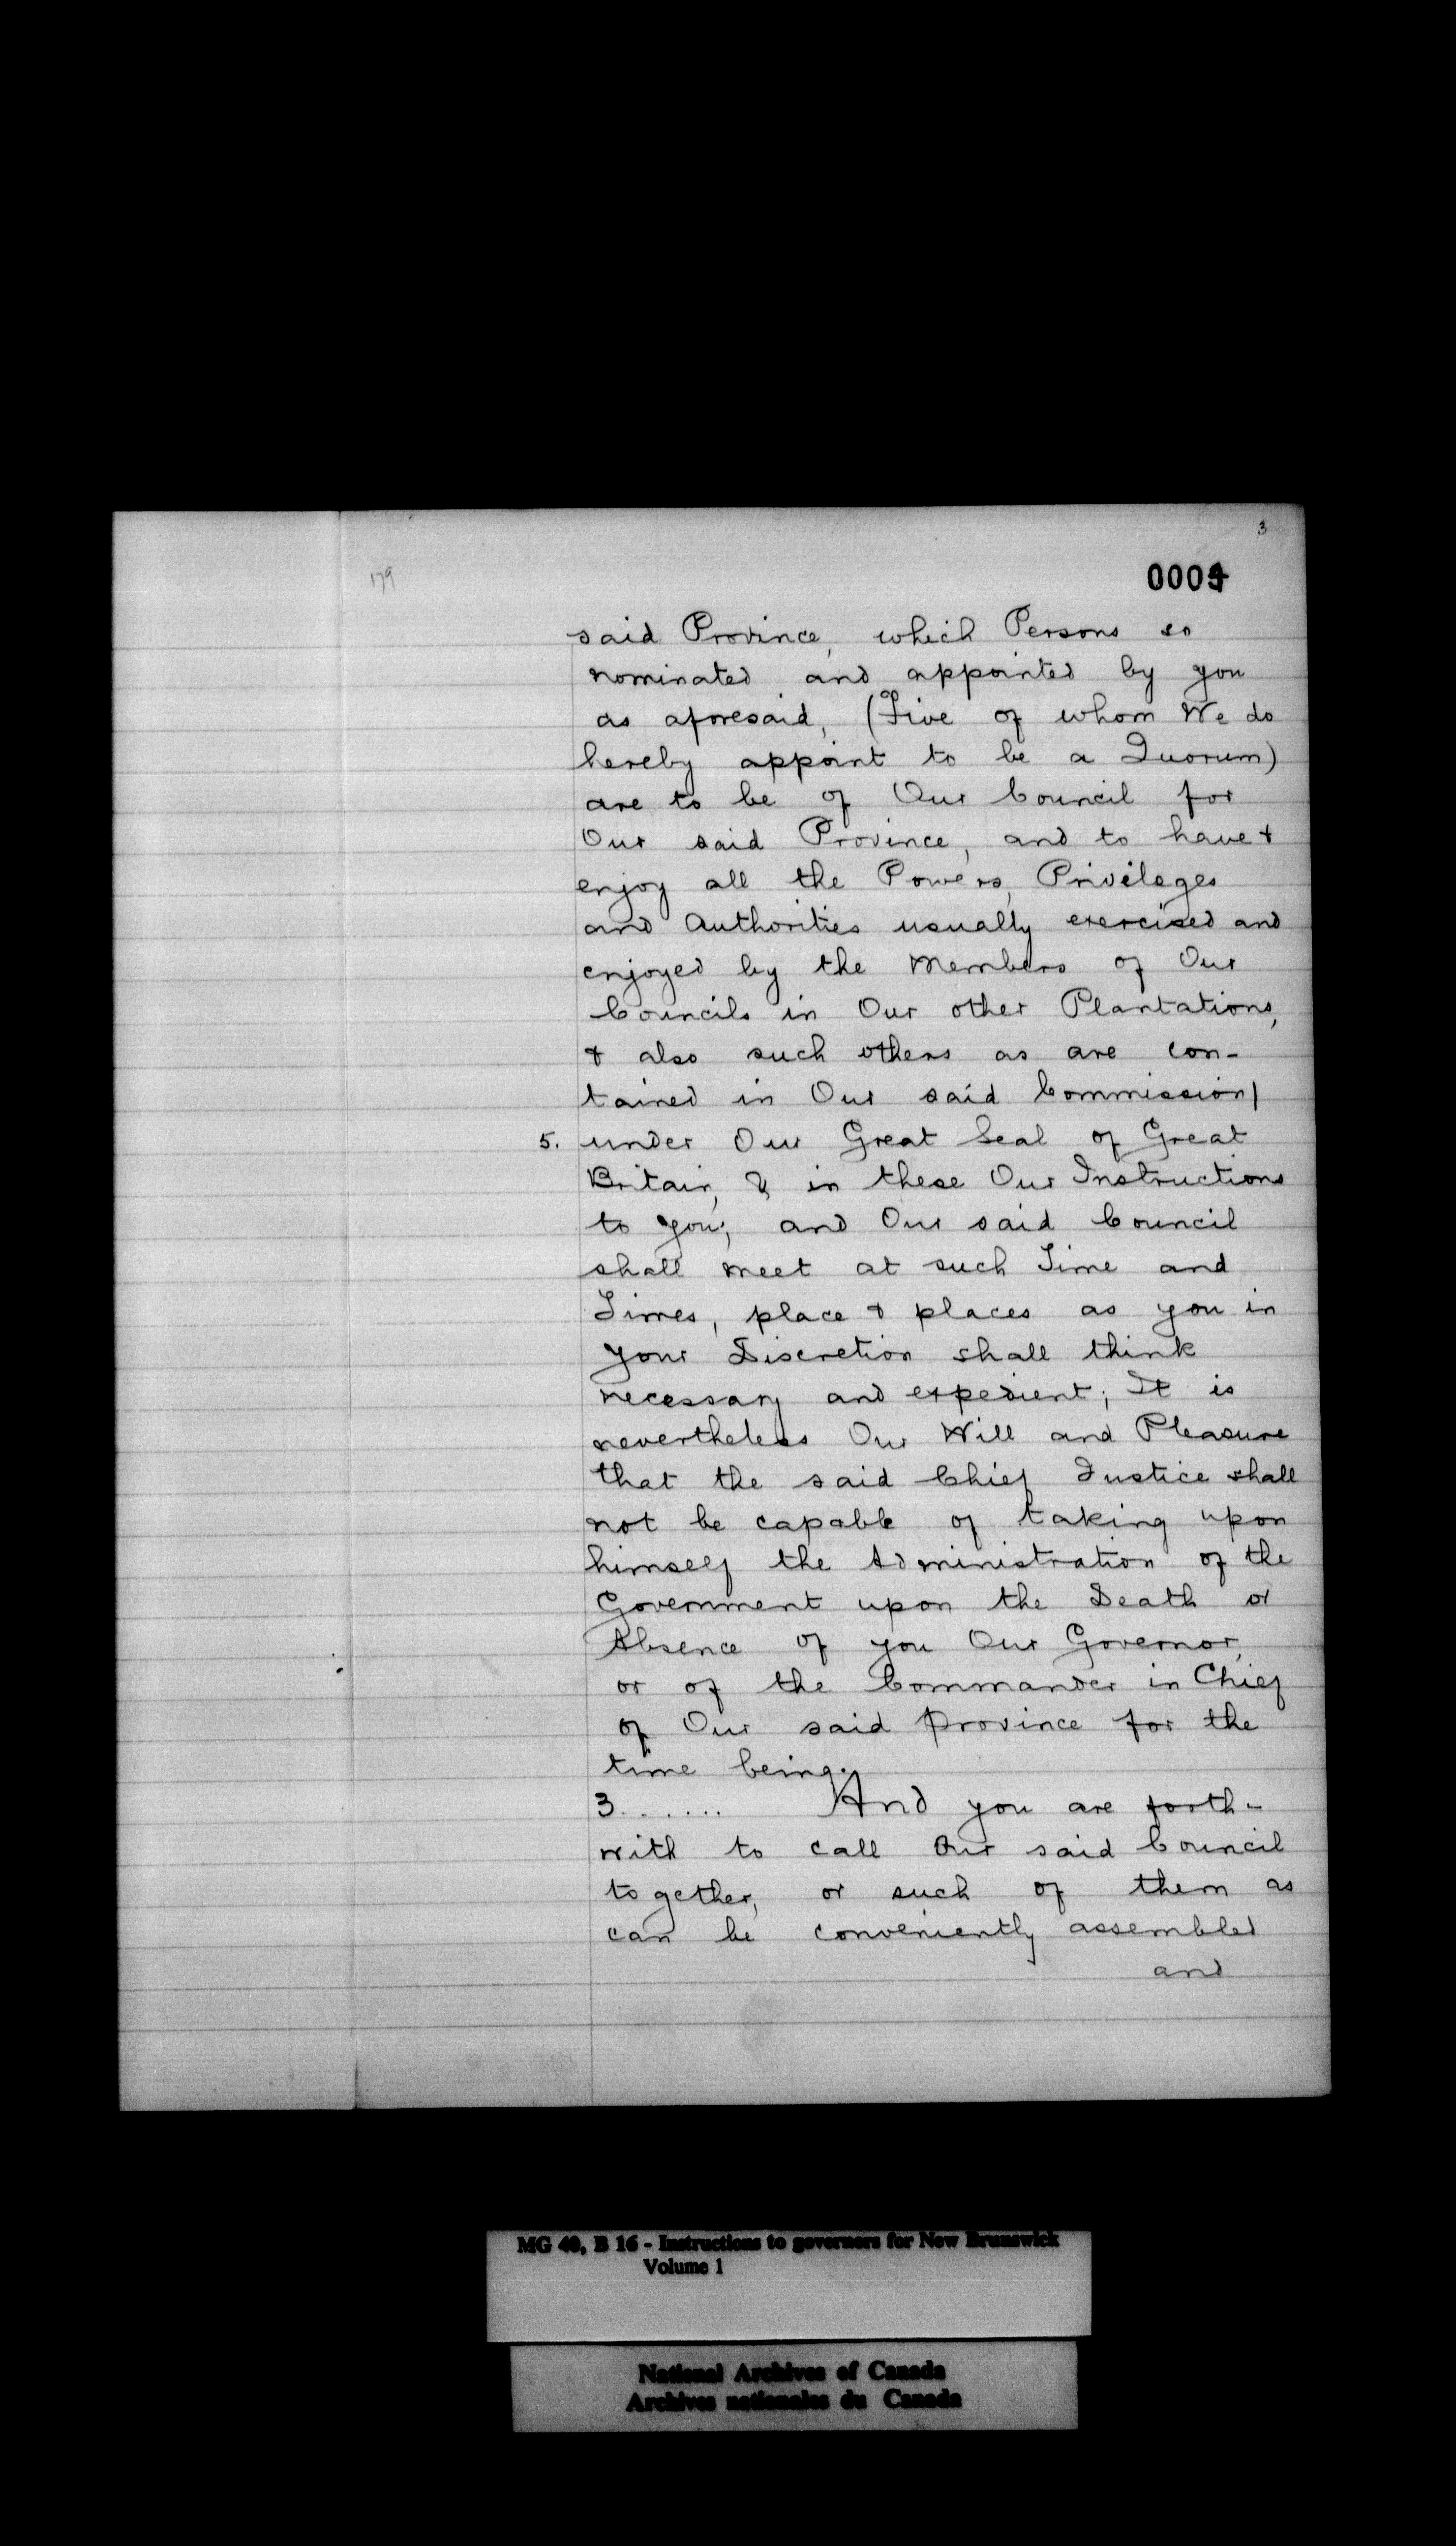 3
179
0004
said Province, which Persons so
nominated and appointed by you
as aforesaid, (Five of whom We do
hereby appoint to be a Quorum)
are to be of Our Council for
Our said Province, and to have &
enjoy all the Powers, Privileges
and Authorities usually exercised and
enjoyed by the Members of Our
Councils in Our other Plantations,
& also such others as are con-
tained in Our said Commission|
5. under Our Great Seal of Great
Britain, & in these Our Instructions
to you; and Our said Council
shall meet at such Time and
Times, place & places as you in
your Discretion shall think
necessary and expedient; It is
nevertheless Our Will and Pleasure
that the said Chief Justice shall
not be capable of taking upon
himself the Administration of the
Government upon the Death or
Absence of you Our Governor,
or of the Commander in Chief
of Our said Province for the
time being.
3....... And you are forth-
with to call Our said Council
together, or such of them as
can be conveniently assembled
and
MG 40, B 16 - Instructions to governors for New Brunswick
Volume 1
National Archives of Canada
Archives nationales du Canada